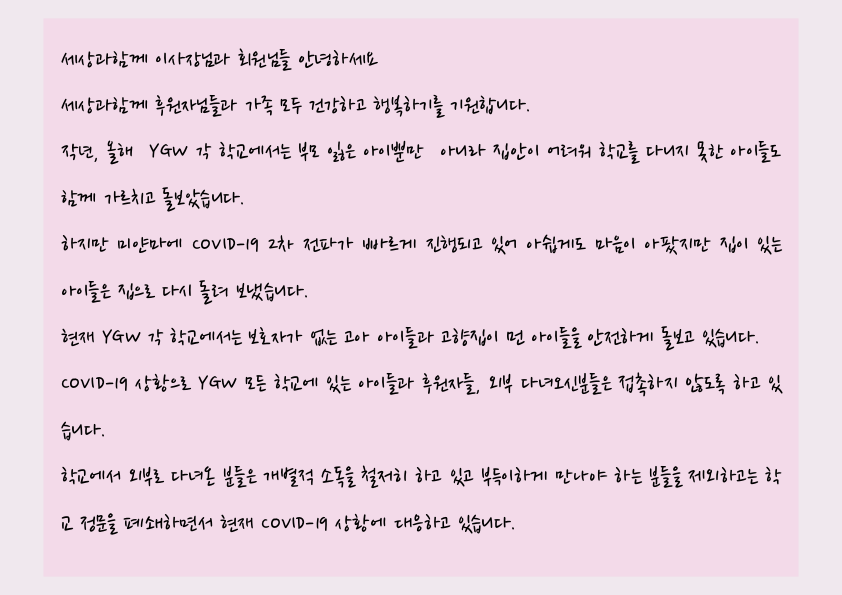 세상과함께 이사장님과 회원님들 안녕하세요
세상과함께 후원자님들과 가족 모두 건강하고 행복하기를 기원합니다.
작년, 올해 YGW 각 학교에서는 부모 잃은 아이뿐만 아니라 집안이 어려워 학교를 다니지 못한 아이들도
함께 가르치고 돌보았습니다.
하지만 미얀마에 COVID-19 2차 전파가 빠르게 진행되고 있어 아쉽게도 마음이 아팠지만 집이 있는
아이들은 집으로 다시 돌려 보냈습니다.
현재 YGW 각 학교에서는 보호자가 없는 고아 아이들과 고향집이 먼 아이들을 안전하게 돌보고 있습니다.
COVID-19 상황으로 YGW 모든 학교에 있는 아이들과 후원자들, 외부 다녀오신분들은 접촉하지 않도록 하고 있
습니다.
학교에서 외부로 다녀온 분들은 개별적 소독을 철저히 하고 있고 부득이하게 만나야 하는 분들을 제외하고는 학
교 정문을 폐쇄하면서 현재 COVID-19 상황에 대응하고 있습니다.